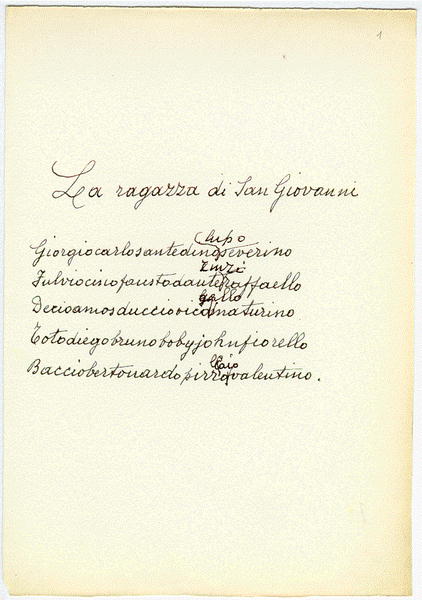 1
La ragazza di San Giovanni
lupo
Giorgiocarlosantedinoseverino
zinzi
Fulviocinofaustodanteraffaello
gallo
Decioamosduccioricomaturino
Totodiegobrunobobyjohnfiorello
baio
Bacciobertonardopirrovalentino.